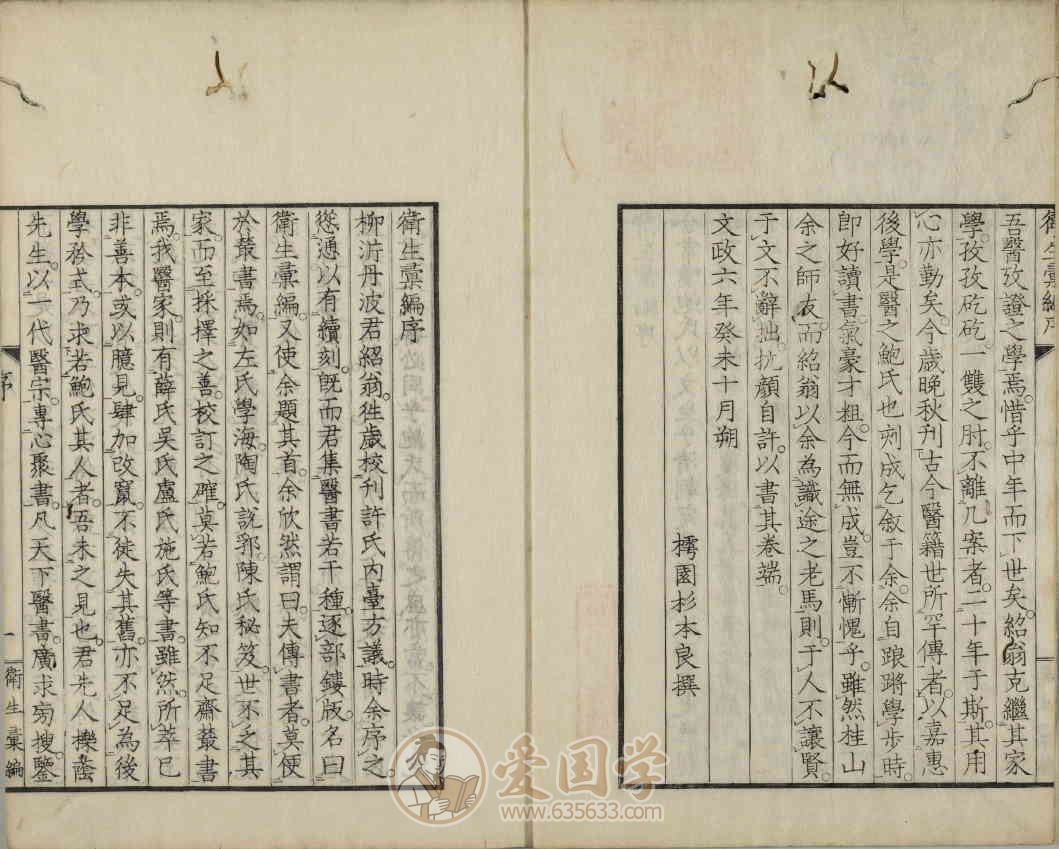 衛生彙編序
吾醫攷證之學焉。惜乎中年而下世矣。紹翁克繼其家
學。孜孜矻矻。一雙之肘。不離几案者。二十年于斯。其用
心亦勤矣。今歲晚秋。刊古今醫籍世所罕傳者。以嘉惠
後學。是醫之鮑氏也。刻成乞敘于余。余自踉蹡學步時。
即好讀書。氣豪才粗。今而無成。豈不慚愧乎。雖然桂山
余之師友。而紹翁以余為識途之老馬。則于人不讓賢。
于文不辭拙。抗顏自許。以書其卷端。
文政六年癸未十月朔
樗園杉本良撰
衛生彙編序
柳沜丹波君紹翁。徃歲校刊許氏內臺方議。時余序之。
慫慂以有續刻。旣而君集醫書若干種。逐部鏤版。名曰
衛生彙編。又使余題其首。余欣然謂曰。夫傳書者。莫便
於叢書焉。如左氏學海。陶氏說郛。陳氏秘笈。世不乏其
家。而至採擇之善。校訂之確。莫若鮑氏知不足齋叢書
焉。我醫家。則有薛氏吳氏盧氏施氏等書。雖然。所萃已
非善本。或以臆見。肆加改竄。不徒失其舊。亦不足為後
學矜式。乃求若鮑氏其人者。吾未之見也。君先人櫟蔭
先生。以一代醫宗。專心聚書。凡天下醫書。廣求旁搜。鑒
序
一
衛生彙編
爱国学
www.635633.com